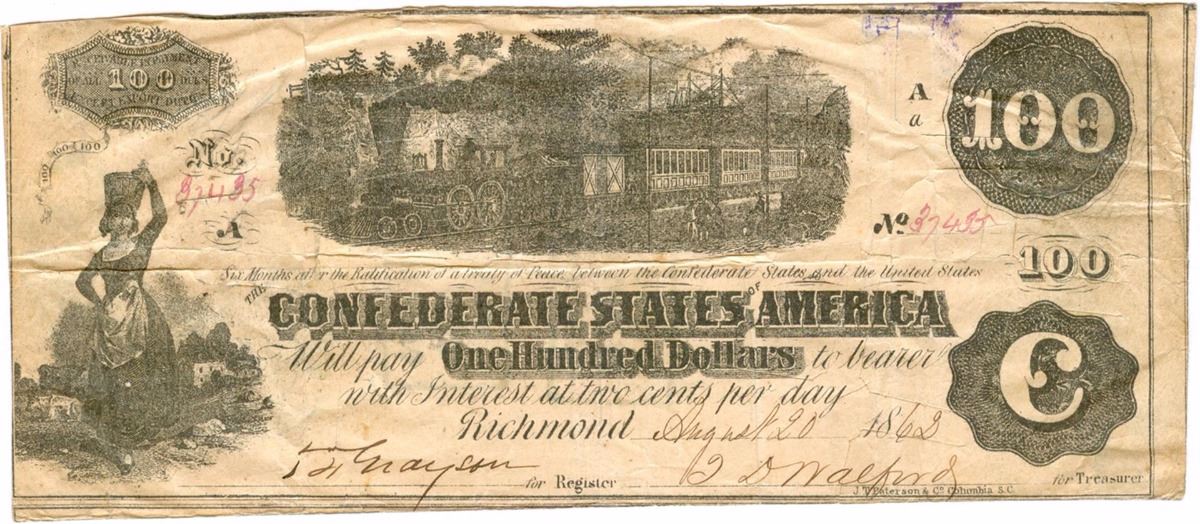 RECEIVABLE IN PAYMENT
OF ALL 100 DUES
EXCEPT EXPORT DUTIES
100 100 100
No.
37435
A
A
a
100
No 37435
100
Six Months after the Ratification of a treaty of Peace between the Confederate States and the United States
THE CONFEDERATE STATES OF AMERICA
Will pay One Hundred Dollars to bearer
with Interest at two cents per day
Richmond August 20 1862
C
for Register
for Treasurer
J. T. Paterson & Co Columbia S.C.